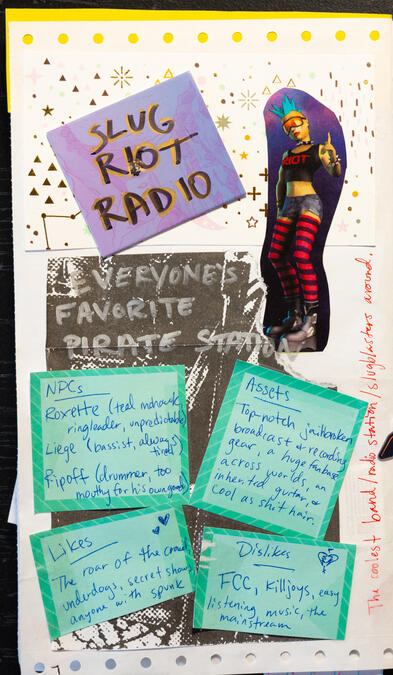 SLUG
RIOT
RADIO
RIOT
EVERYONE'S
FAVORITE
PIRATE STATION
NPCs
Roxette (teal mohawk,
ringleader, unpredictable)
Liege (bassist, always
tired)
Ripoff (drummer, too
mouthy for his own good)
Assets
Top-notch jailbroken
broadcast & recording
gear, a huge fanbase
across worlds, an
inherited guitar, &
cool as shit hair.
Likes
The roar of the crowd,
underdogs, secret shows,
anyone with spunk
Dislikes
FCC, killjoys, easy
listening music, the
mainstream
The coolest band/radio station/slugblasters around.
7